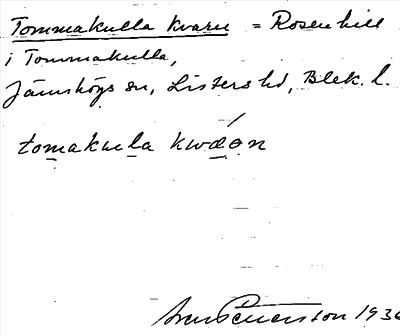 Tommakulla kvarn = Rosenhill
i Tommakulla,
Jämshögs sn, Listers hd, Blek. l.
tomakula kwæon
1936